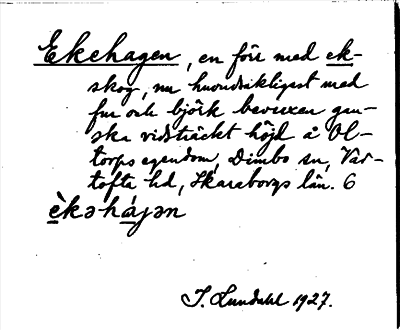 Ekehagen, en förr med ek-
skog, nu huvudsakligast med
fur och björk bevuxen gan-
ska vidsträckt höjd å Ol-
torps egendom, Dimbo sn, Var-
tofta hd, Skaraborgs län. 6
è̱kəhá̱jən
I. Lundahl 1927.